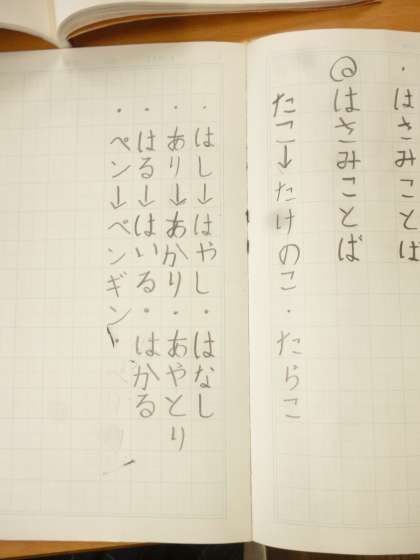 ・はさみことば
@はさみことば
たこ→たけのこ・たらこ
・はし→はやし・はなし
・あり→あかり・あやとり
・はる→はいる・はかる
・ペン→ペンギン・